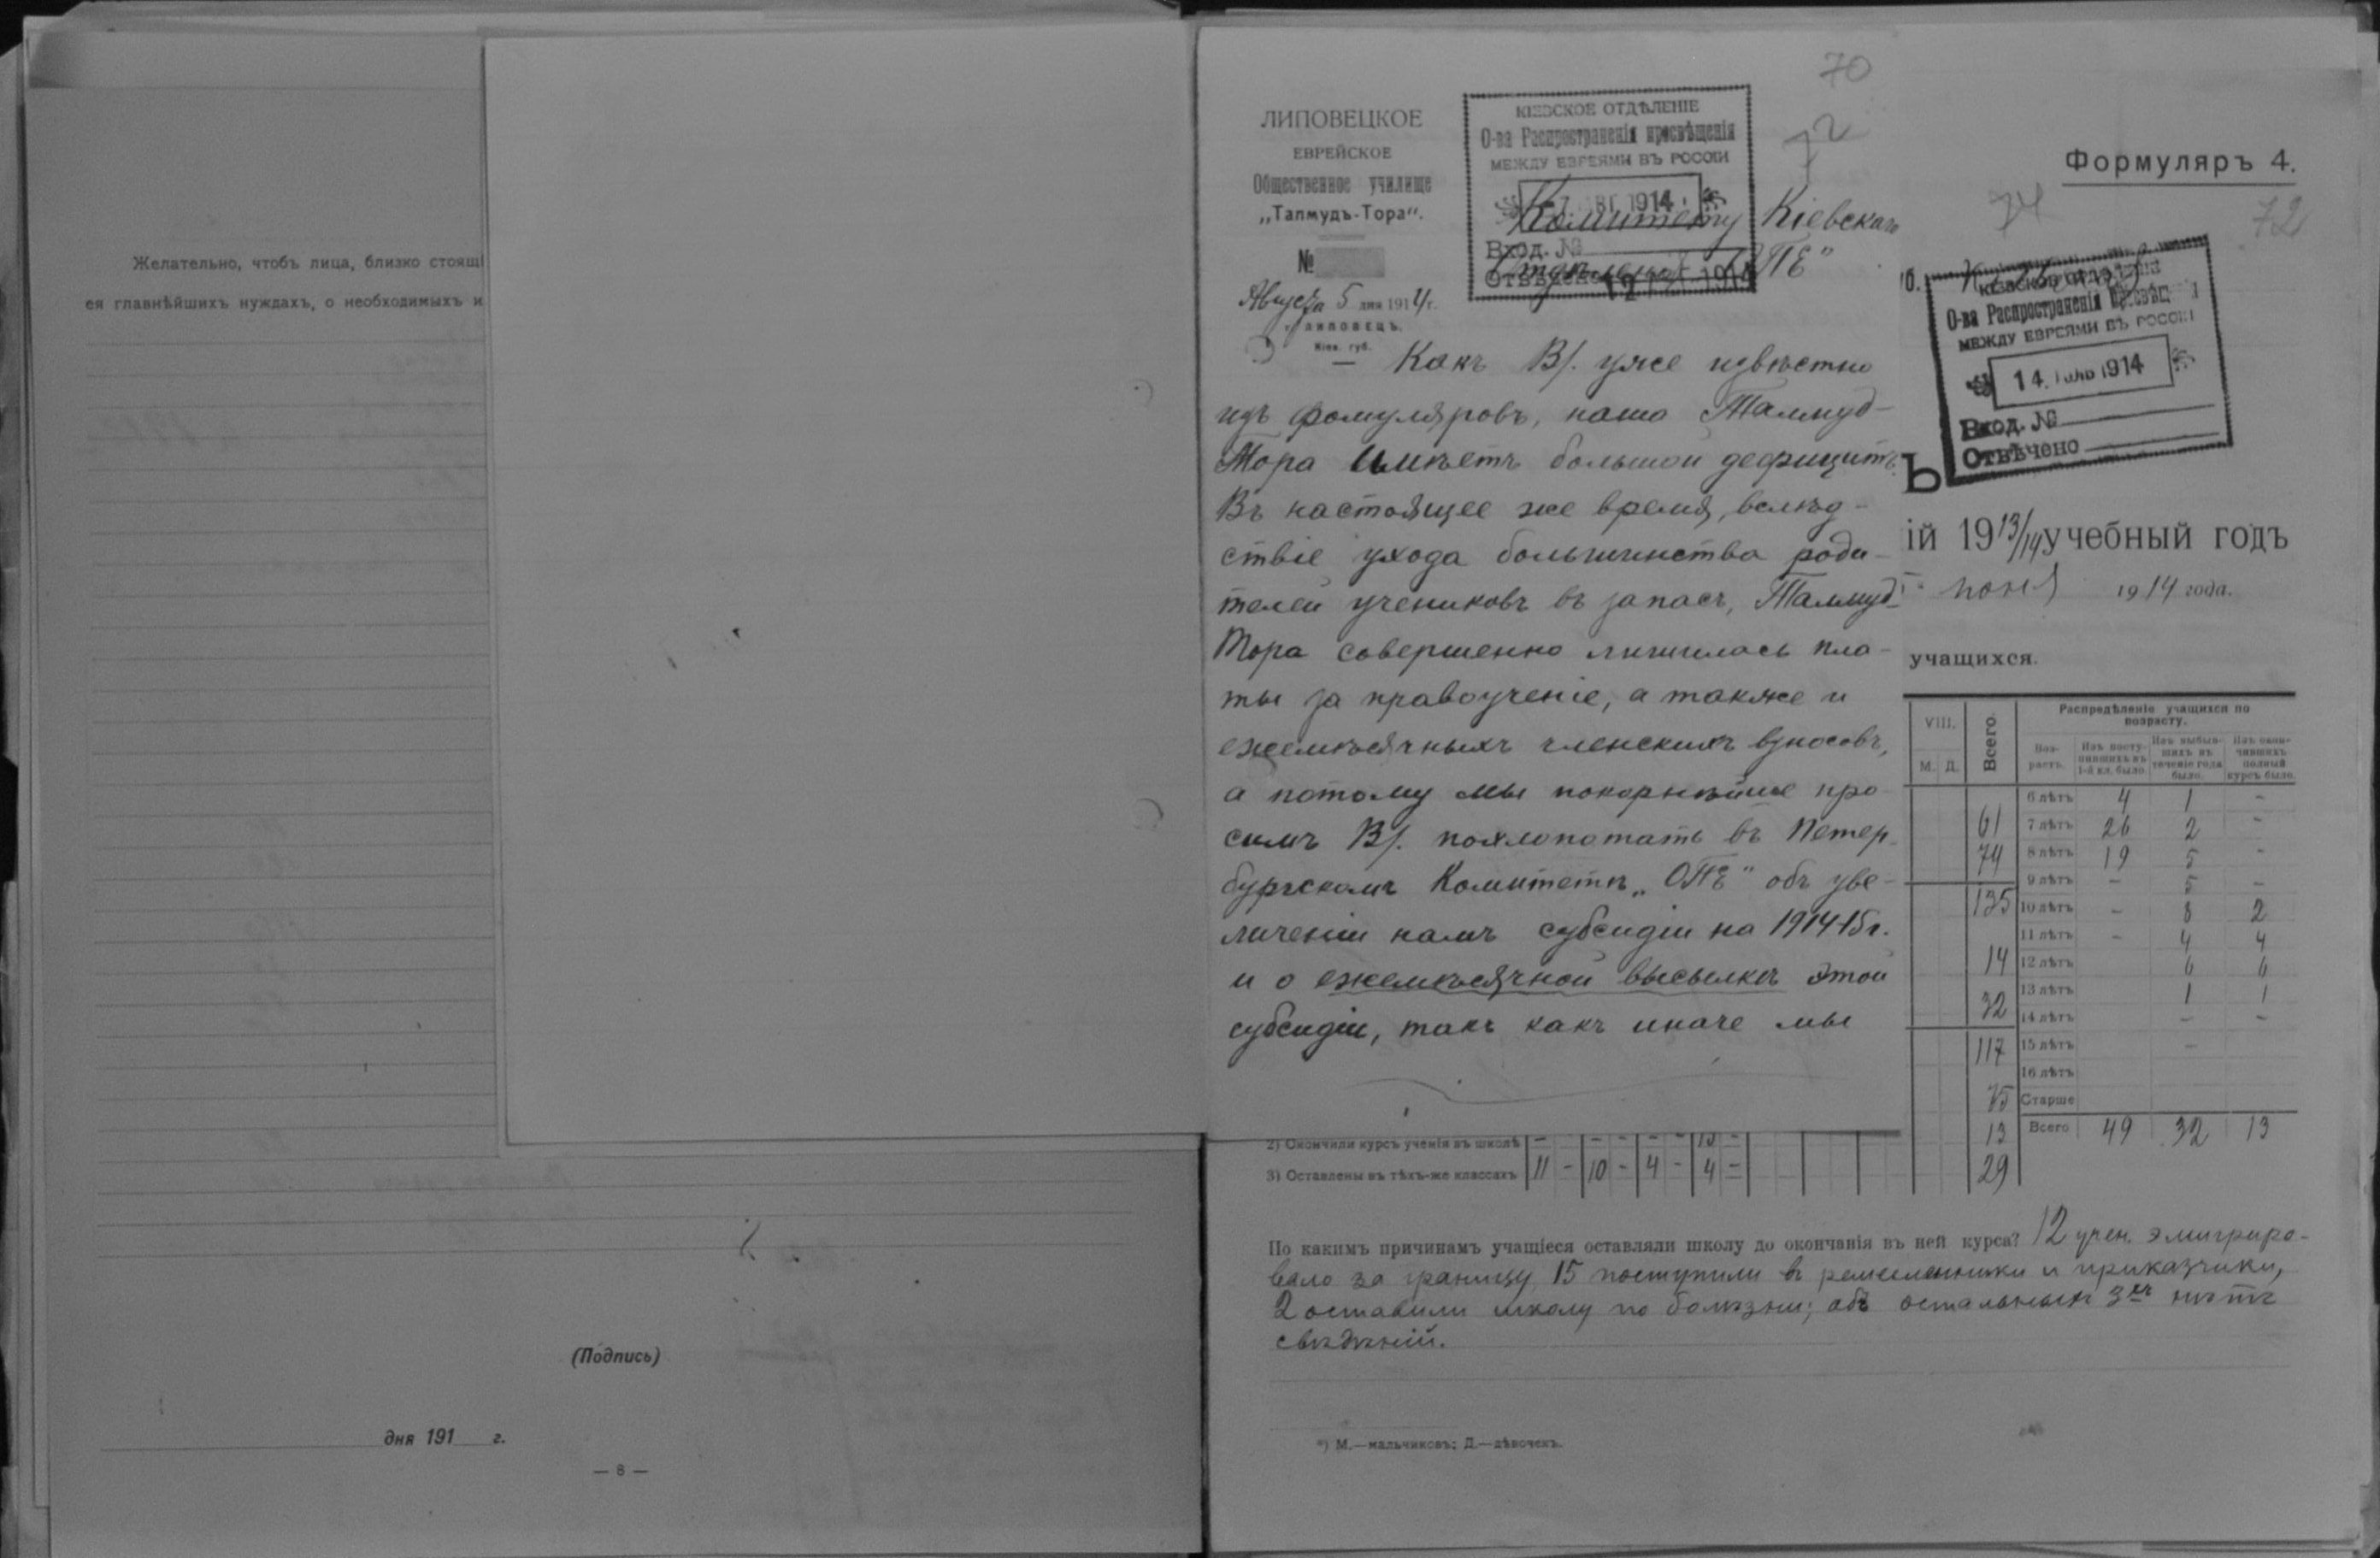 Желательно, чтобъ лица, близко стоящі
ея главнѣйшихъ нуждахъ, о необходимыхъ и
(Подпись)
дня 191 г.
— 8 —
70
72
ЛИПОВЕЦКОЕ
ЕВРЕЙСКОЕ
Общественное училище
„Талмудъ-Тора“.
№
Августа 5 дня 1914 г.
г. ЛИПОВЕЦЪ.
Кіев. губ.
КІЕВСКОЕ ОТДѢЛЕНІЕ
О-ва Распространенія просвѣщенія
МЕЖДУ ЕВРЕЯМИ ВЪ РОССІИ
7 АВГ 1914
Вход. №
Отвѣчено 12 1914
Комитету Кіевскаго
Отдѣленія „ОПЕ“
Какъ Вs. уже извѣстно
изъ фомуляровъ, наша Талмуд-
Тора имѣетъ большой дефицитъ.
Въ настоящее же время, вслѣд-
ствіе ухода большинства роди-
телей учениковъ въ запасъ, Талмуд-
Тора совершенно лишилась пла-
ты за правоученіе, а также и
ежемѣсячныхъ членскихъ взносовъ,
а потому мы покорнѣйше про-
симъ Вs. похлопотать въ Петер-
бургскомъ Комитетѣ „ОПЕ“ объ уве-
личеніи намъ субсидіи на 1914-15 г.
и о ежемѣсячной высылкѣ этой
субсидіи, такъ какъ иначе мы
Формуляръ 4.
74
72
КІЕВСКОЕ ОТДѢЛЕНІЕ
О-ва Распространенія просвѣщенія
МЕЖДУ ЕВРЕЯМИ ВЪ РОССІИ
14. ІЮЛЬ 1914
Вход. №
Отвѣчено
Ъ
ій 1913/14 учебный годъ
1914 года.
учащихся.
VIII. Всего. Распредѣленіе учащихся по возрасту.
М. Д. Воз-растъ. Изъ посту-пившихъ въ 1-й кл. было. Изъ выбыв-шихъ въ теченіе года было. Изъ окон-чившихъ полный курсъ было.
6 лѣтъ 4 1 -
61 7 лѣтъ 26 2 -
74 8 лѣтъ 19 5 -
9 лѣтъ - 5 -
135 10 лѣтъ - 8 2
11 лѣтъ - 4 4
14 12 лѣтъ 6 6
13 лѣтъ 1 1
32 14 лѣтъ - -
117 15 лѣтъ -
16 лѣтъ
75 Старше
13 Всего 49 32 13
29
2) Окончили курсъ ученія въ школѣ - - - - 13 -
3) Оставлены въ тѣхъ-же классахъ 11 - 10 - 4 - 4 -
По какимъ причинамъ учащіеся оставляли школу до окончанія въ ней курса? 12 учен. эмигриро-
вало за границу, 15 поступили въ ремесленники и приказчики,
2 оставили школу по болѣзни; объ остальныхъ 3хъ нѣтъ
свѣдѣній.
*) М.—мальчиковъ; Д.—дѣвочекъ.